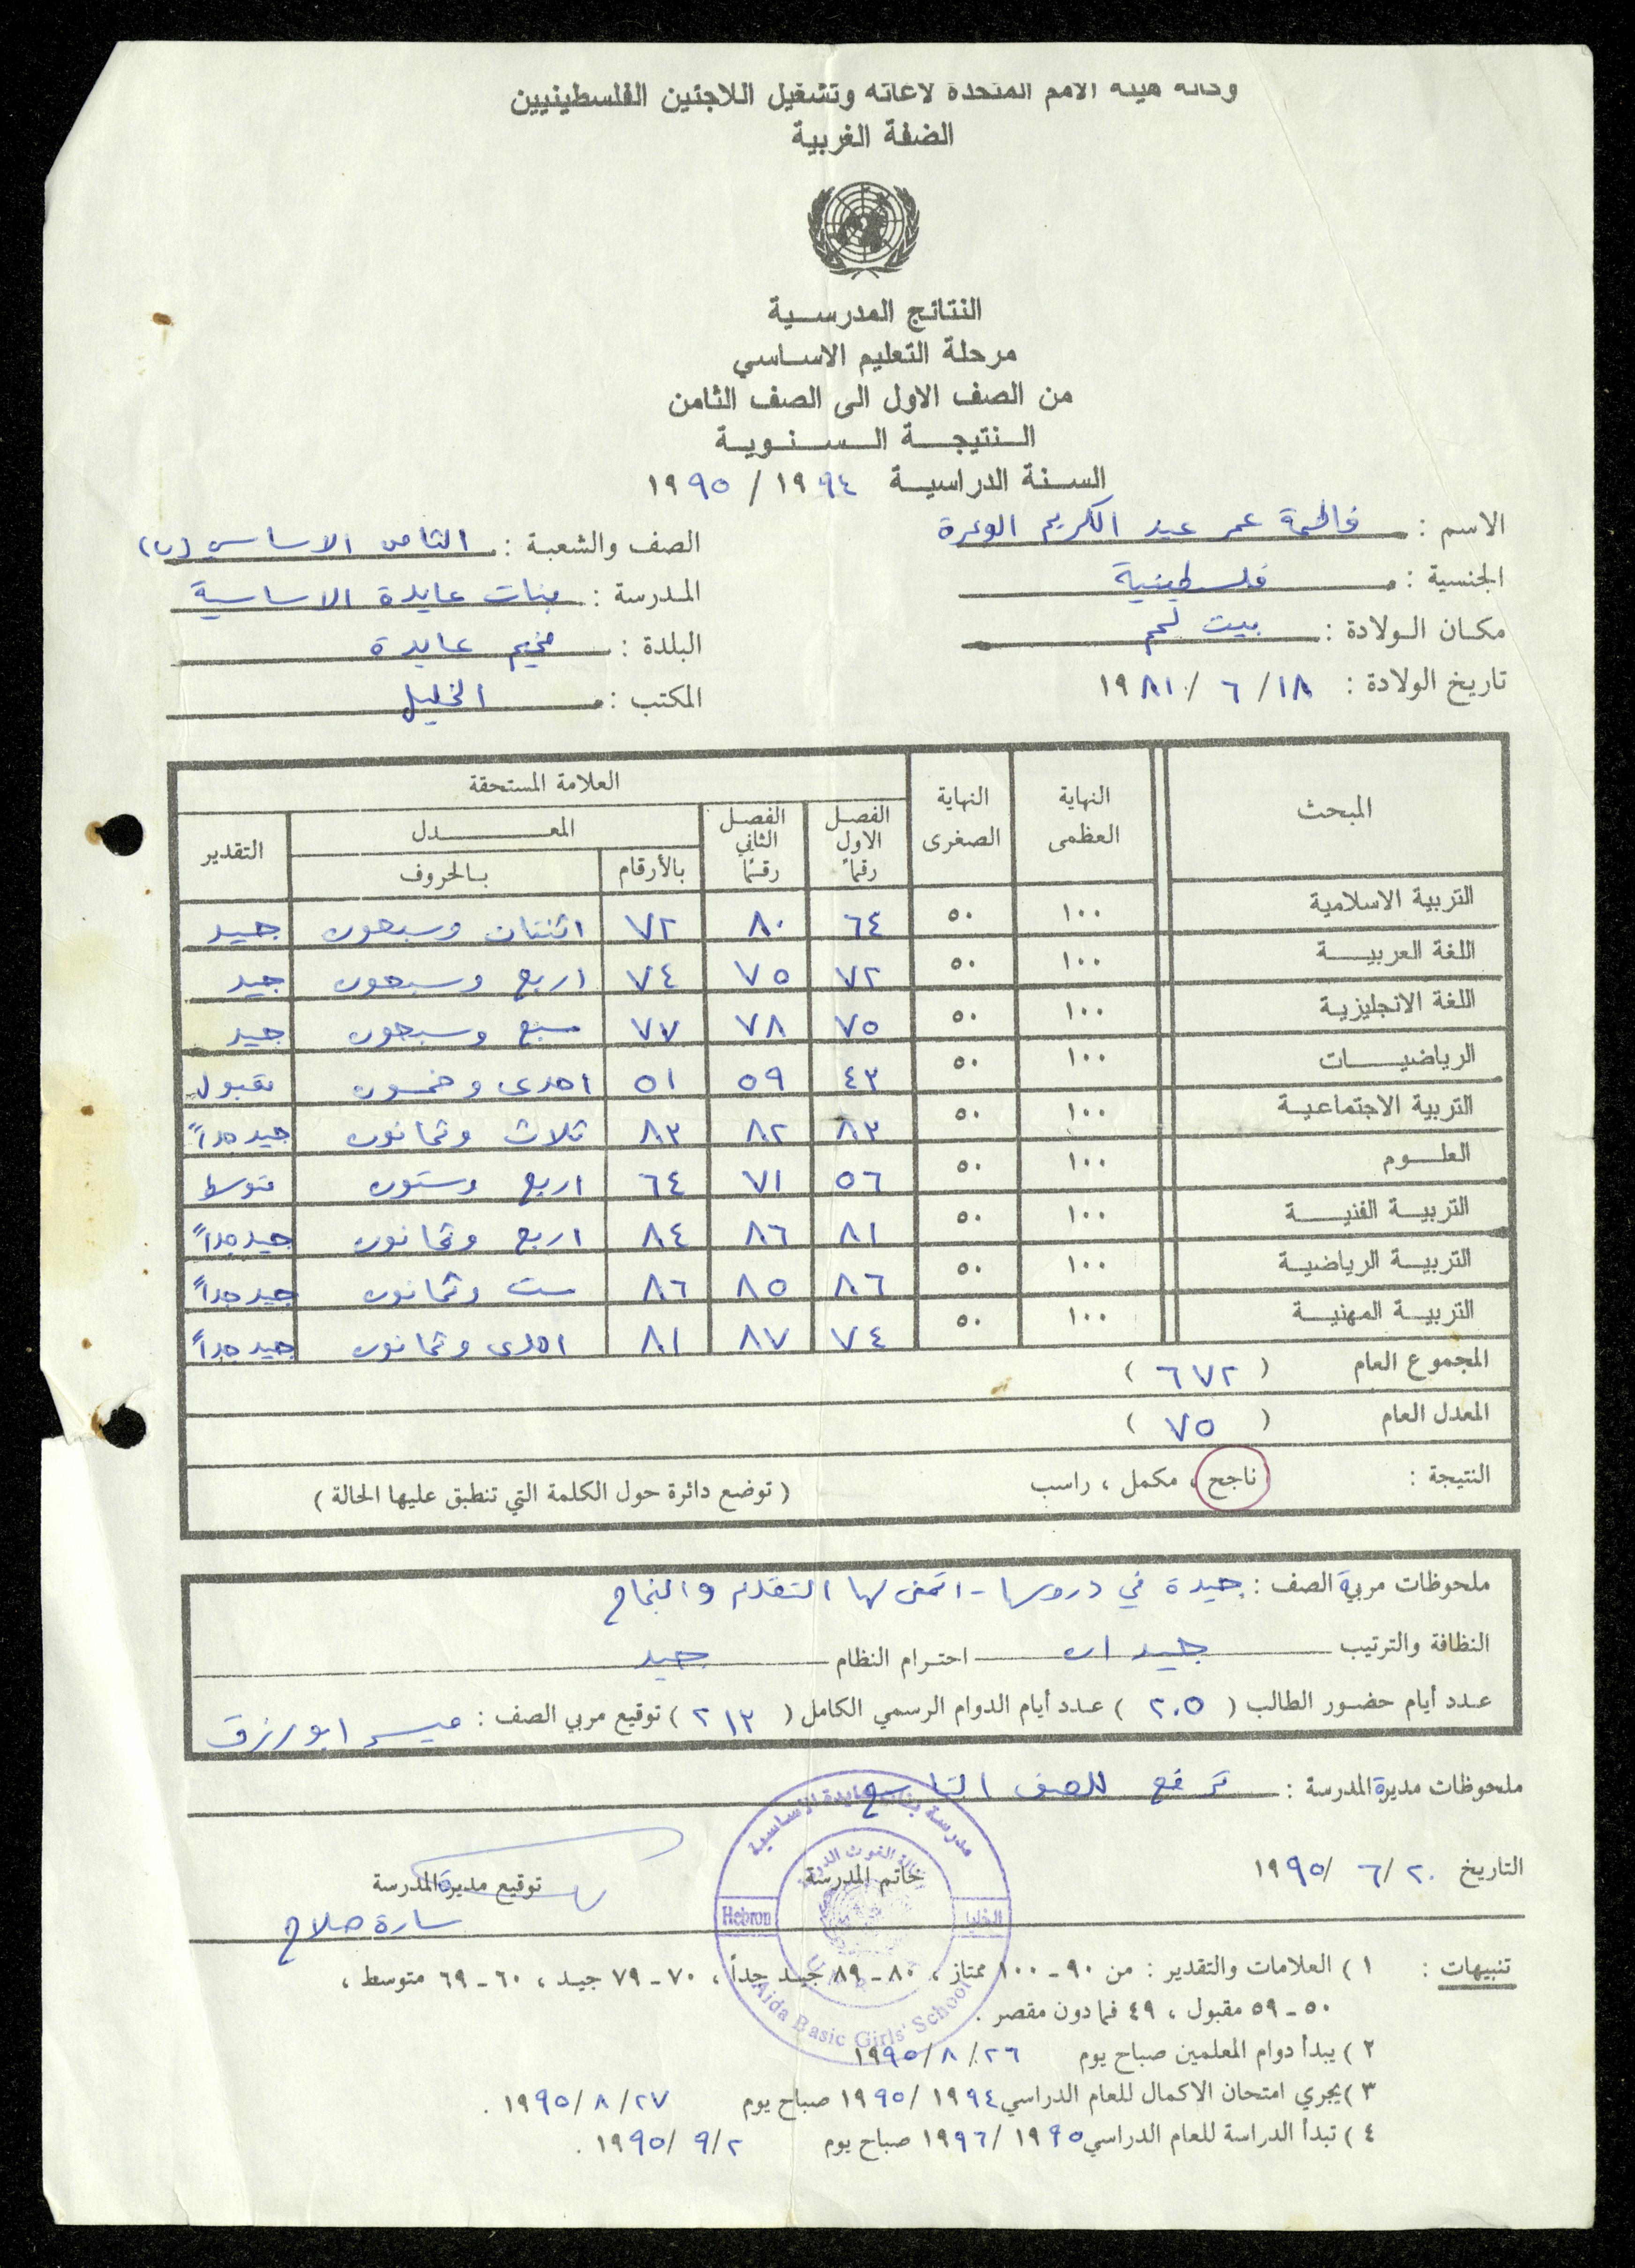 وكالة هيئة الامم المتحدة لاغاثة وتشغيل اللاجئين الفلسطينيين
الضفة الغربية
النتائج المدرسية
مرحلة التعليم الاساسي
من الصف الاول الى الصف الثامن
النتيجة السنوية
السنة الدراسية ١٩٩٤ / ١٩٩٥
الاسم : فاطمة عمر عبد الكريم الوعرة
الصف والشعبة : الثامن الاساسي (ب)
الجنسية : فلسطينية
المدرسة : بنات عايدة الاساسية
مكان الولادة : بيت لحم
البلدة : مخيم عايدة
تاريخ الولادة : ١٨ / ٦ / ١٩٨١
المكتب : الخليل
المبحث النهاية العظمى النهاية الصغرى العلامة المستحقة
الفصل الاول رقماً الفصل الثاني رقماً المعدل التقدير
بالأرقام بالحروف
التربية الاسلامية ١٠٠ ٥٠ ٦٤ ٨٠ ٧٢ اثنتان وسبعون جيد
اللغة العربية ١٠٠ ٥٠ ٧٢ ٧٥ ٧٤ اربع وسبعون جيد
اللغة الانجليزية ١٠٠ ٥٠ ٧٥ ٧٨ ٧٧ سبع وسبعون جيد
الرياضيات ١٠٠ ٥٠ ٤٣ ٥٩ ٥١ احدى وخمسون مقبول
التربية الاجتماعية ١٠٠ ٥٠ ٨٣ ٨٢ ٨٣ ثلاث وثمانون جيد جداً
العلوم ١٠٠ ٥٠ ٥٦ ٧١ ٦٤ اربع وستون متوسط
التربية الفنية ١٠٠ ٥٠ ٨١ ٨٦ ٨٤ اربع وثمانون جيد جداً
التربية الرياضية ١٠٠ ٥٠ ٨٦ ٨٥ ٨٦ ست وثمانون جيد جداً
التربية المهنية ١٠٠ ٥٠ ٧٤ ٨٧ ٨١ احدى وثمانون جيد جداً
المجموع العام ( ٦٧٢ )
المعدل العام ( ٧٥ )
النتيجة : ناجح ، مكمل ، راسب ( توضع دائرة حول الكلمة التي تنطبق عليها الحالة )
ملحوظات مربية الصف : جيدة في دروسها - اتمنى لها التقدم والنجاح
النظافة والترتيب جيدان احترام النظام جيد
عدد أيام حضور الطالب ( ٢٠٥ ) عدد أيام الدوام الرسمي الكامل ( ٢١٣ ) توقيع مربي الصف : ميسر ابو رزق
ملحوظات مديرة المدرسة : ترفع للصف التاسع
التاريخ ٢٠ / ٦ / ١٩٩٥
خاتم المدرسة
توقيع مديرة المدرسة
سارة صلاح
مدرسة بنات عايدة الاساسية
وكالة الغوث الدولية
Hebron
الخليل
Aida Basic Girls' School
تنبيهات : ١ ) العلامات والتقدير : من ٩٠ - ١٠٠ ممتاز ، ٨٠ - ٨٩ جيد جداً ، ٧٠ - ٧٩ جيد ، ٦٠ - ٦٩ متوسط ،
٥٠ - ٥٩ مقبول ، ٤٩ فما دون مقصر .
٢ ) يبدأ دوام المعلمين صباح يوم ٢٦ / ٨ / ١٩٩٥
٣ ) يجري امتحان الاكمال للعام الدراسي ١٩٩٤ / ١٩٩٥ صباح يوم ٢٧ / ٨ / ١٩٩٥ .
٤ ) تبدأ الدراسة للعام الدراسي ١٩٩٥ / ١٩٩٦ صباح يوم ٢ / ٩ / ١٩٩٥ .